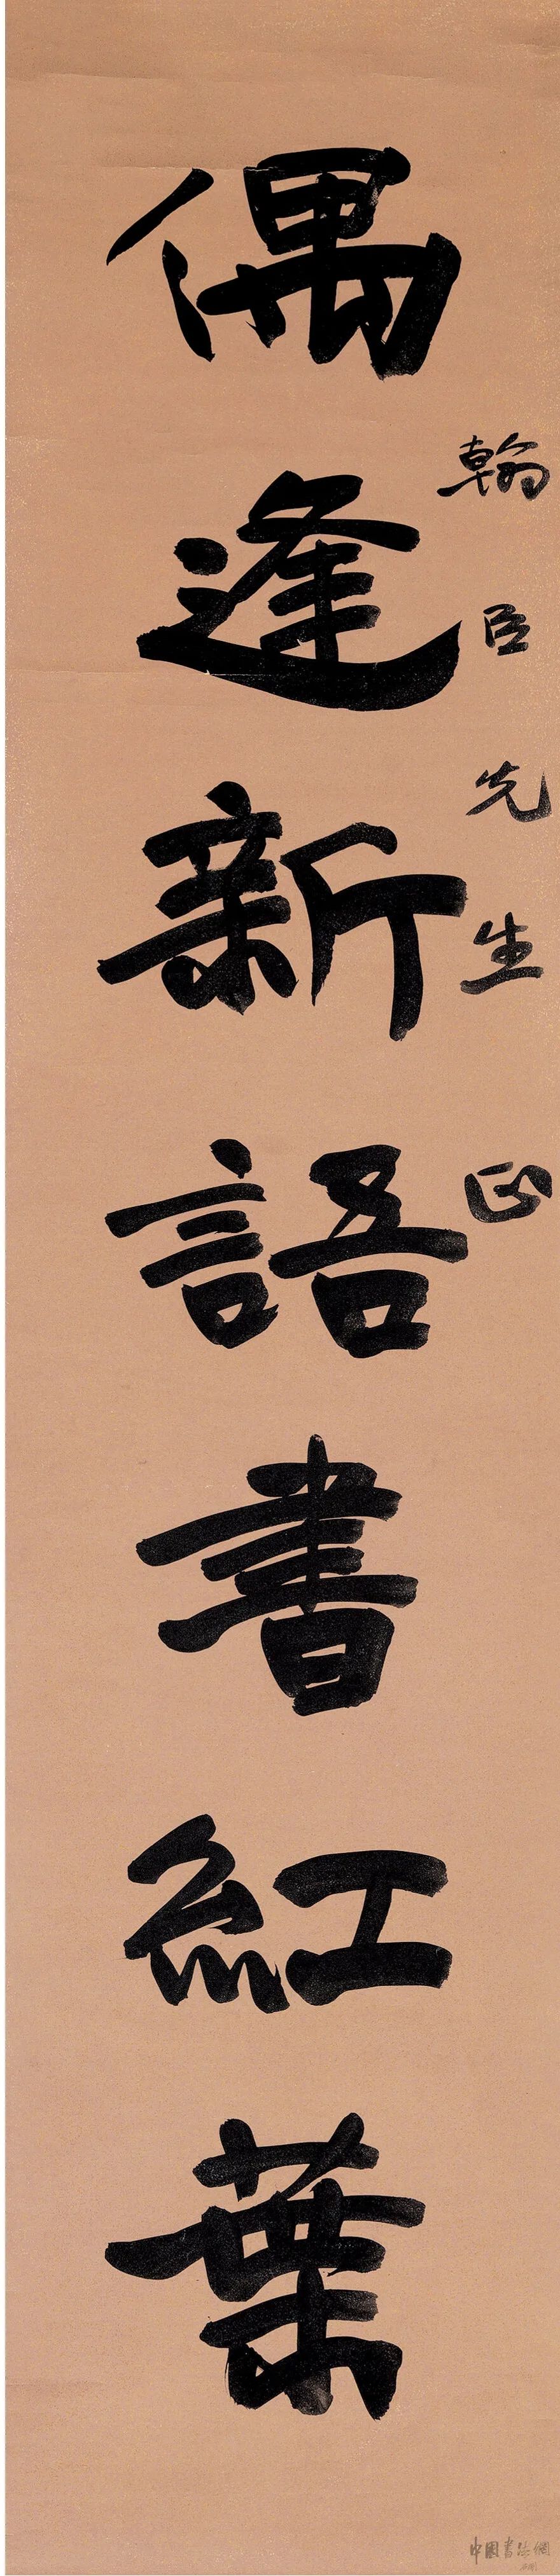 翰臣先生正
偶逢新語書紅葉
中國書法網